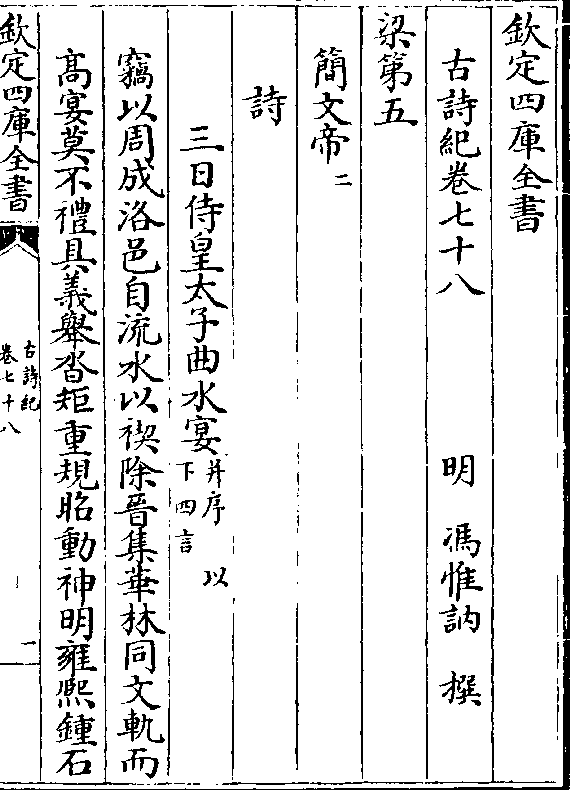 欽定四庫全書
古詩紀卷七十八
明 馮惟訥 撰
梁第五
簡文帝二
詩
三日侍皇太子曲水宴并序 以下四言
竊以周成洛邑自流水以禊除晉集華林同文軌而
髙宴莫不禮具義舉沓矩重規昭動神明雍熙鍾石
欽定四庫全書
古詩紀
卷七十八
一